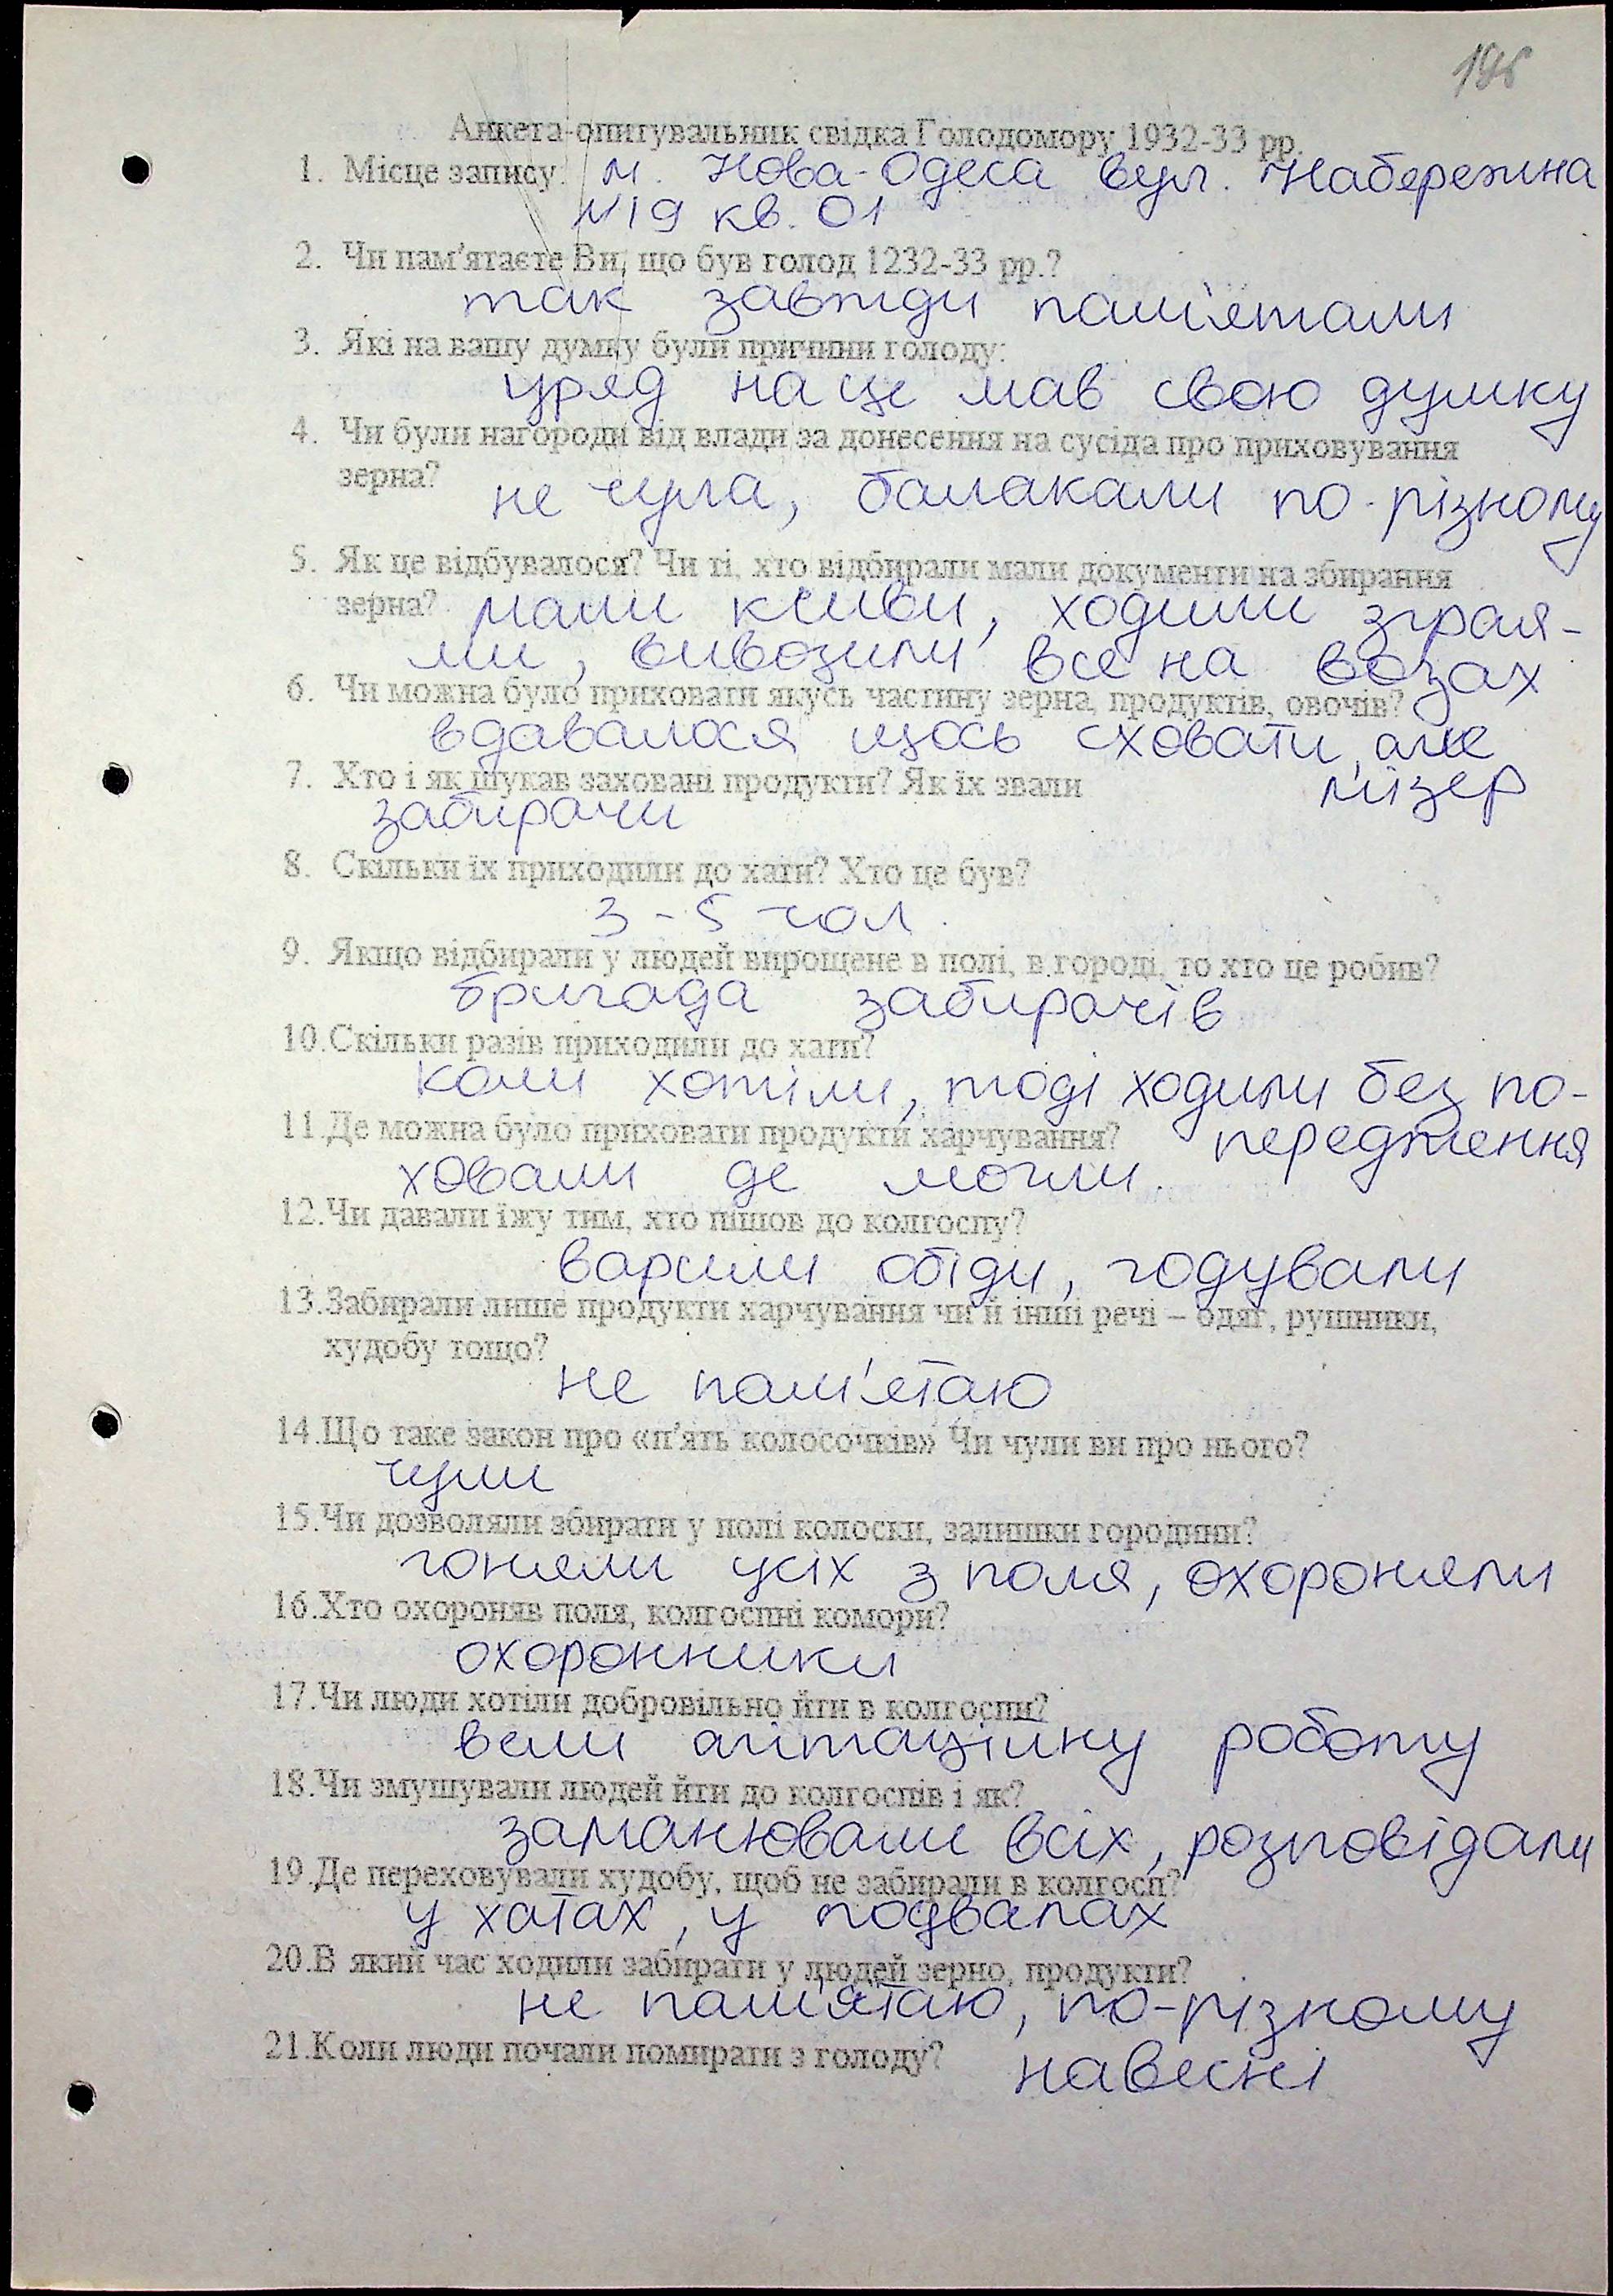 196
Анкета-опитувальник свідка Голодомору 1932-33 рр.
1. Місце запису: м. Нова-Одеса вул. Набережна
№19 кв. 01
2. Чи пам'ятаєте Ви, що був голод 1232-33 рр.?
так завжди пам'ятали
3. Які на вашу думку були причини голоду:
уряд на це мав свою думку
4. Чи були нагороди від влади за донесення на сусіда про приховування
зерна? не чула, балакали по-різному
5. Як це відбувалося? Чи ті, хто відбирали мали документи на збирання
зерна? мали ксиви, ходили зграя-
ми, вивозили все на возах
6. Чи можна було приховати якусь частину зерна, продуктів, овочів?
вдавалося щось сховати, але
мізер
7. Хто і як шукав заховані продукти? Як їх звали
забирачи
8. Скільки їх приходили до хати? Хто це був?
3-5 чол.
9. Якщо відбирали у людей вирощене в полі, в городі, то хто це робив?
бригада забирачів
10.Скільки разів приходили до хати?
коли хотіли, тоді ходили без по-
передження
11.Де можна було приховати продукти харчування?
ховали де могли.
12.Чи давали їжу тим, хто пішов до колгоспу?
варили обіди, годували
13.Забирали лише продукти харчування чи й інші речі – одяг, рушники,
худобу тощо?
не пам'ятаю
14.Що таке закон про «п'ять колосочків» Чи чули ви про нього?
чули
15.Чи дозволяли збирати у полі колоски, залишки городини?
гоняли усіх з поля, охороняли
16.Хто охороняв поля, колгоспні комори?
охоронники
17.Чи люди хотіли добровільно йти в колгоспи?
вели агітаційну роботу
18.Чи змушували людей йти до колгоспів і як?
заманювали всіх, розповідали
19.Де переховували худобу, щоб не забирали в колгосп?
у хатах, у подвалах
20.В який час ходили забирати у людей зерно, продукти?
не пам'ятаю, по-різному
21.Коли люди почали помирати з голоду? навесні